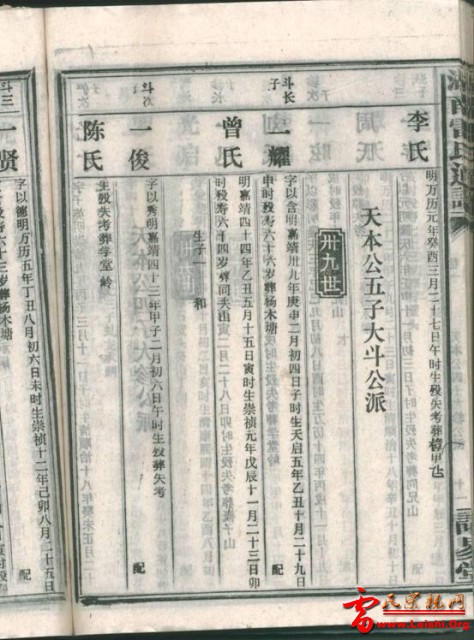 李氏
明万历元年癸酉三月二十七日午时生殁失考葬
天本公五子大斗公派
卅九世
斗长子
一耀
字以含明嘉靖卅九年庚申二月初四日子时生天启五年乙丑十月二十九日
申时殁寿六十六岁葬杨木塘
配
曾氏
明嘉靖四十四年乙丑五月十五日寅时生崇祯元年戊辰十一月二十三日卯
时殁寿六十四岁葬同夫山
生子一
和
斗次
一俊
字以秀明嘉靖四十三年甲子二月初六日午时生殁葬失考
配
陈氏
生殁失考葬学堂岭
斗三
一贤
字以德明万历五年丁丑八月初六日未时生崇祯十二年己卯八月二十五日
时殁寿六十三岁葬杨木塘
配
雷氏宗亲网
www.Leisbl.Org